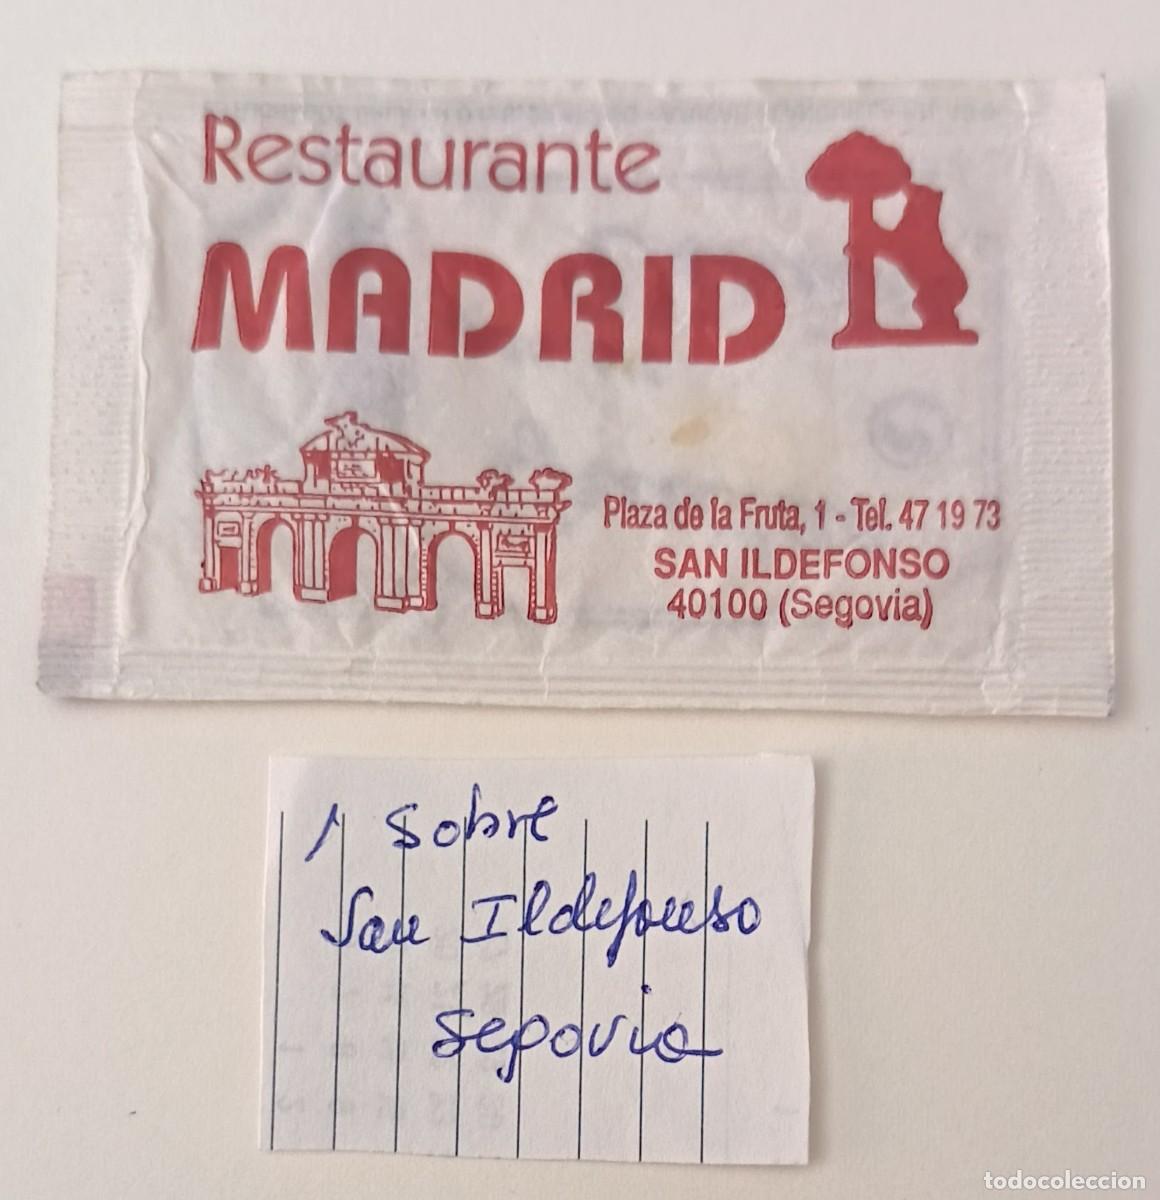 Restaurante
MADRID
Plaza de la Fruta, 1 - Tel. 47 19 73
SAN ILDEFONSO
40100 (Segovia)
1 Sobre
San Ildefonso
Segovia
todocoleccion